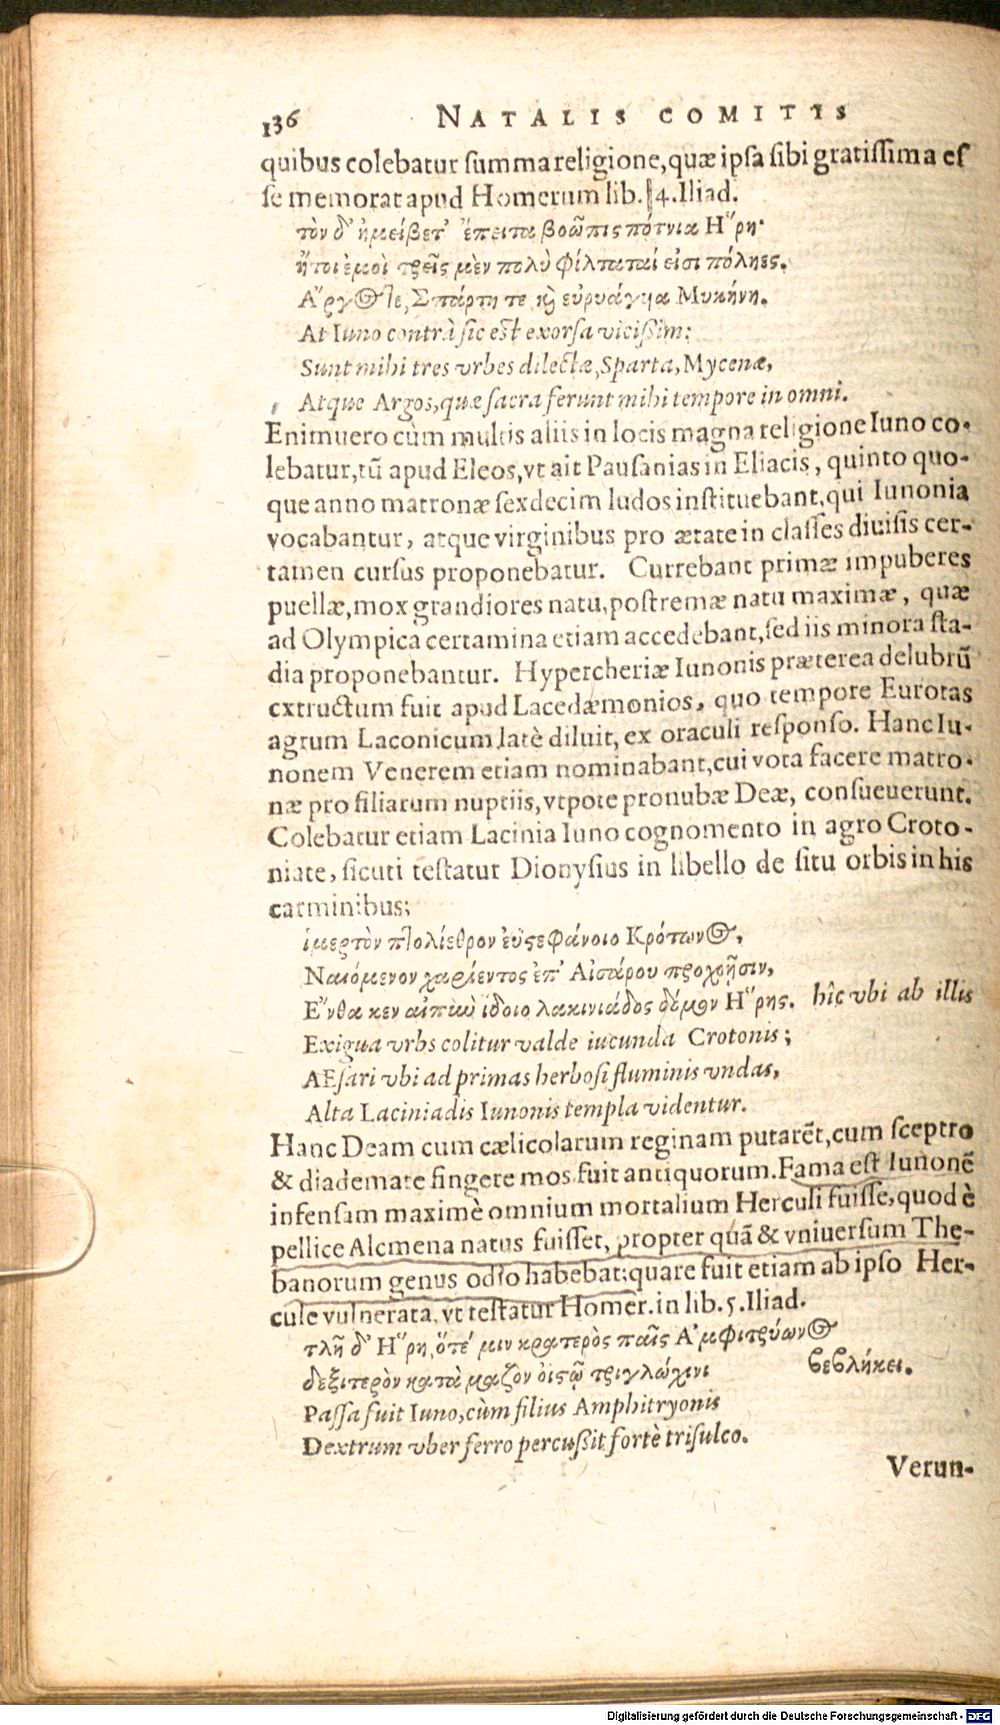 136 NATALIS COMITIS
quibus colebatur summa religione, quæ ipsa sibi gratissima es
se memorat apud Homerum lib. 4. Iliad.
τὸν δ' ἠμείβετ' ἔπειτα βοῶπις πότνια Ἥρη·
ἤτοι ἐμοὶ τρεῖς μὲν πολὺ φίλταταί εἰσι πόληες.
Ἄργος τε, Σπάρτη τε καὶ εὐρυάγυια Μυκήνη.
At Iuno contrà sic est exorsa vicißim:
Sunt mihi tres vrbes dilectæ, Sparta, Mycenæ,
Atque Argos, quæ sacra ferunt mihi tempore in omni.
Enimuero cùm multis aliis in locis magna religione Iuno co-
lebatur, tū apud Eleos, vt ait Pausanias in Eliacis, quinto quo-
que anno matronæ sexdecim ludos instituebant, qui Iunonia
vocabantur, atque virginibus pro ætate in classes diuisis cer-
tamen cursus proponebatur. Currebant primæ impuberes
puellæ, mox grandiores natu, postremæ natu maximæ, quæ
ad Olympica certamina etiam accedebant, sed iis minora sta-
dia proponebantur. Hypercheriæ Iunonis præterea delubrū
extructum fuit apud Lacedæmonios, quo tempore Eurotas
agrum Laconicum latè diluit, ex oraculi responso. Hanc Iu-
nonem Venerem etiam nominabant, cui vota facere matro-
næ pro filiarum nuptiis, vtpote pronubæ Deæ, consueuerunt.
Colebatur etiam Lacinia Iuno cognomento in agro Croto-
niate, sicuti testatur Dionysius in libello de situ orbis in his
carminibus;
ἱμερτὸν πτολίεθρον ἐϋστεφάνοιο Κρότωνος,
Ναιόμενον χαρίεντος ἐπ' Αἰσάρου προχοῇσιν,
Ἔνθα κεν αἰπὺν ἴδοιο λακινιάδος δόμον Ἥρης. hîc vbi ab illis
Exigua vrbs colitur valde iucunda Crotonis;
AEsari vbi ad primas herbosi fluminis vndas,
Alta Laciniadis Iunonis templa videntur.
Hanc Deam cum cælicolarum reginam putarēt, cum sceptro
& diademate fingere mos fuit antiquorum. Fama est Iunonē
infensam maximè omnium mortalium Herculi fuisse, quod è
pellice Alcmena natus fuisset, propter quā & vniuersum The-
banorum genus odio habebat: quare fuit etiam ab ipso Her-
cule vulnerata, vt testatur Homer. in lib. 5. Iliad.
τλῆ δ' Ἥρη, ὅτέ μιν κρατερὸς παῖς Ἀμφιτρύωνος
δεξιτερὸν κατὰ μαζὸν ὀιστῷ τριγλώχινι βεβλήκει.
Passa fuit Iuno, cùm filius Amphitryonis
Dextrum vber ferro percußit fortè trisulco.
Verun-
Digitalisierung gefördert durch die Deutsche Forschungsgemeinschaft - DFG